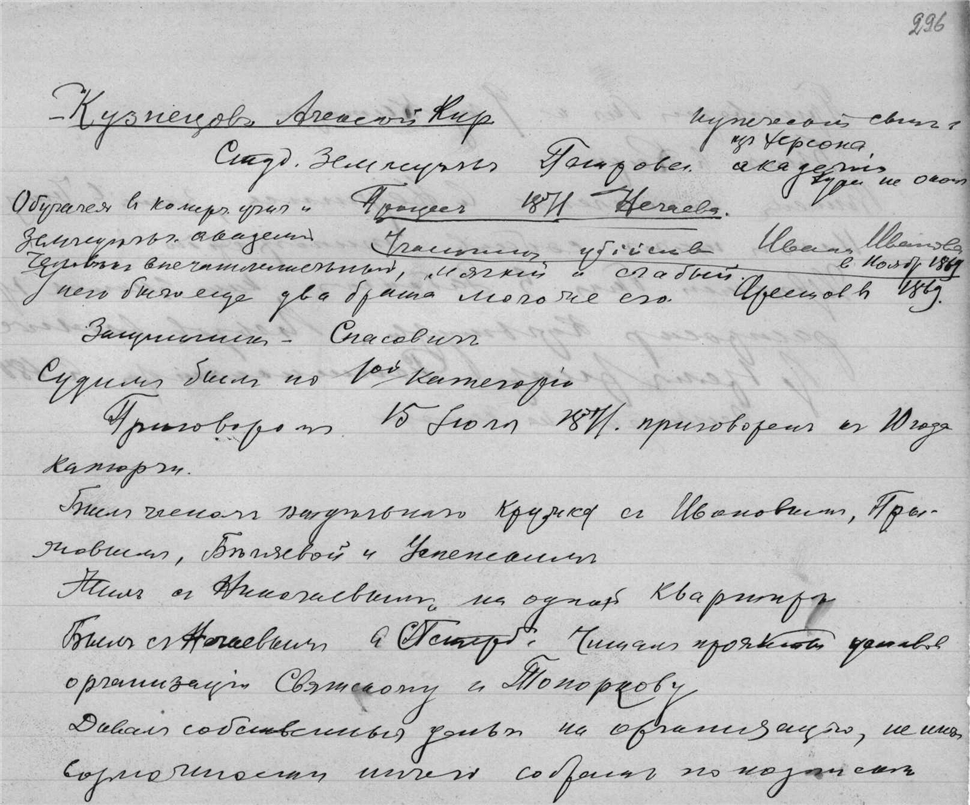 296
Кузнецовъ Алексей Кир купеческий сынъ
изъ Херсона
Студ. Земледельч Петровс. академіи
курса не оконч
Обучался в комерч. учил и Процесс 1871 Нечаева.
Земледельч. академіи Участник убійства Ивана Иванова
в ноябр 1869
Человек впечатлительный, мягкий и слабый.
У него было еще два брата моложе его Арестов в 1869.
Защитник - Спасович
Судимъ былъ по 1ой категоріи
Приговоромъ 15 Іюля 1871. приговоренъ къ 10 года
каторги.
Былъ членомъ кружка съ Ивановымъ, Пры-
жовымъ, Бѣляевой и Успенскимъ
Жилъ съ Николаевымъ на одной квартирѣ
Былъ съ Нечаевымъ в СПетерб. Читалъ устава
организаціи Святскому и Топоркову
Давалъ собственныя деньги на организацію, не имѣя
возможности ничего собрать по подпискѣ